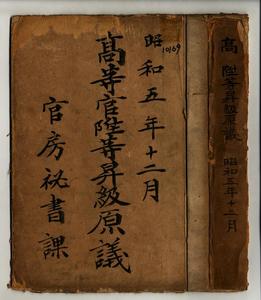 昭和五年十二月
10169
高等官陞等昇級原議
官房祕書課
高 陞等昇級原議 昭和五年十二月